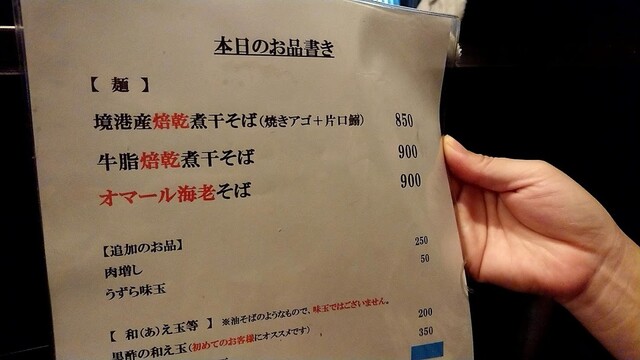 本日のお品書き
【 麺 】
境港産焙乾煮干そば(焼きアゴ＋片口鰯) 850
牛脂焙乾煮干そば 900
オマール海老そば 900
【追加のお品】
肉増し 250
うずら味玉 50
【 和(あ)え玉等 】 ※油そばのようなもので、味玉ではございません。
黒酢の和え玉(初めてのお客様にオススメです) 200
350